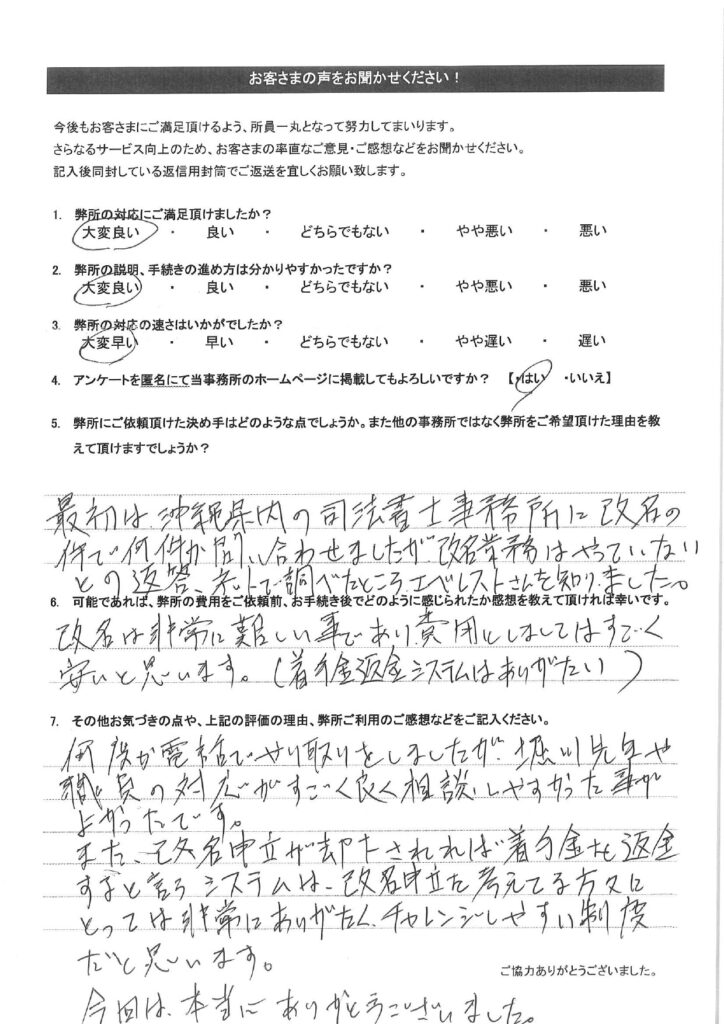 お客さまの声をお聞かせください！
今後もお客さまにご満足頂けるよう、所員一丸となって努力してまいります。
さらなるサービス向上のため、お客さまの率直なご意見・ご感想などをお聞かせください。
記入後同封している返信用封筒でご返送を宜しくお願い致します。
1. 弊所の対応にご満足頂けましたか？
大変良い ・ 良い ・ どちらでもない ・ やや悪い ・ 悪い
2. 弊所の説明、手続きの進め方は分かりやすかったですか？
大変良い ・ 良い ・ どちらでもない ・ やや悪い ・ 悪い
3. 弊所の対応の速さはいかがでしたか？
大変早い ・ 早い ・ どちらでもない ・ やや遅い ・ 遅い
4. アンケートを匿名にて当事務所のホームページに掲載してもよろしいですか？ 【・はい ・いいえ】
5. 弊所にご依頼頂けた決め手はどのような点でしょうか。また他の事務所ではなく弊所をご希望頂けた理由を教
えて頂けますでしょうか？
最初は、沖縄県内の司法書士事務所に改名の
件で何件か問い合わせましたが、改名業務はやっていない
との返答、ネットで調べたところエベレストさんを知りました。
6. 可能であれば、弊所の費用をご依頼前、お手続き後でどのように感じられたか感想を教えて頂ければ幸いです。
改名は非常に難しい事であり、費用としましてはすごく
安いと思います。（着手金返金システムはありがたい）
7. その他お気づきの点や、上記の評価の理由、弊所ご利用のご感想などをご記入ください。
何度か電話でやり取りをしましたが、堀川先生や
職員の対応がすごく良く相談しやすかった事が
よかったです。
また、改名申立が却下されれば着手金を返金
すると言うシステムは、改名申立を考えてる方々に
とっては非常にありがたく、チャレンジしやすい制度
だと思います。
ご協力ありがとうございました。
今回は、本当にありがとうございました。